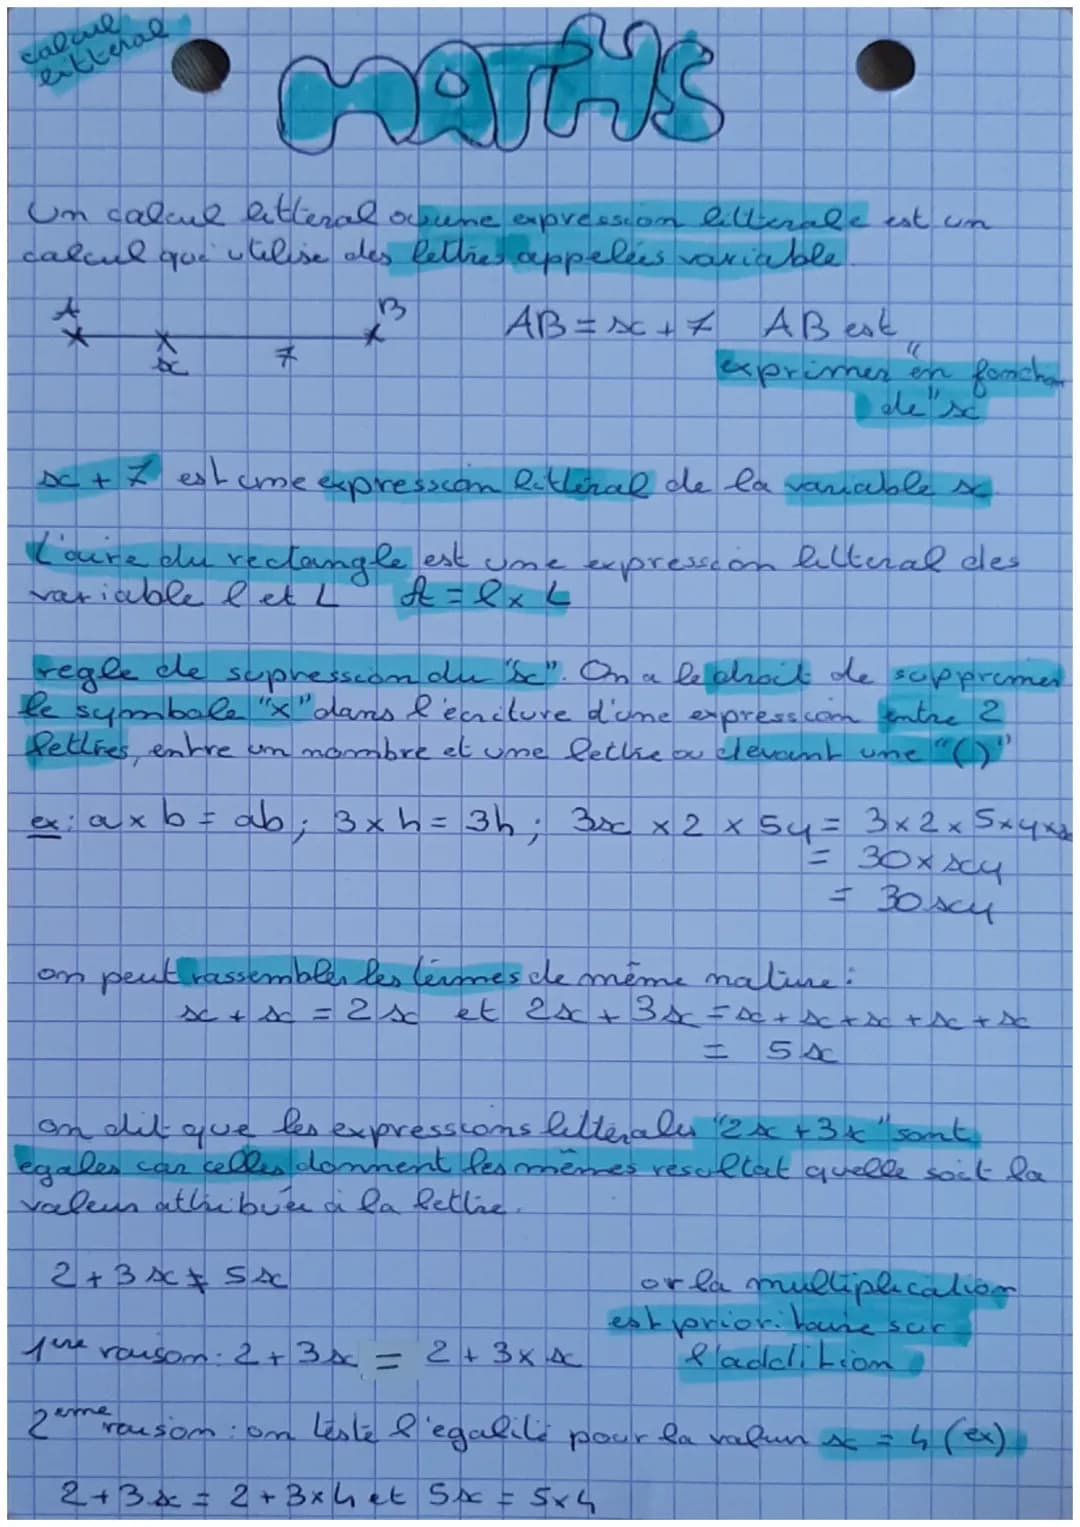 calcul
litteral
MATHS
Un calcul litteral ou une expression litterale est un
calcul qui utilise des lettres appelées variable.
A B
x 7
AB = x + 7 AB est
exprimer "en fonction
de" x
x + 7 est une expression litteral de la variable x.
L'aire du rectangle est une expression litteral des
variable l et L A = l x L
regle de supression du "x". On a le droit de supprimer
le symbole "x" dans l'écriture d'une expression entre 2
lettres, entre un nombre et une lettre ou devant une "()"
ex: a x b = ab ; 3 x h = 3h ; 3x x 2 x 5y = 3 x 2 x 5 x y x x
= 30 x xy
= 30xy
on peut rassembler les termes de même nature :
x + x = 2x et 2x + 3x = x + x + x + x + x
= 5x
on dit que les expressions litterales "2x + 3x" sont
egales car celles donnent les mêmes resultat quelle soit la
valeur attribuée à la lettre.
2 + 3x ≠ 5x
or la multiplication
est prioritaire sur
l'addition
1ere raison : 2 + 3x = 2 + 3 x x
2eme raison : on teste l'egalité pour la valeur x = 4 (ex)
2 + 3x = 2 + 3 x 4 et 5x = 5 x 4